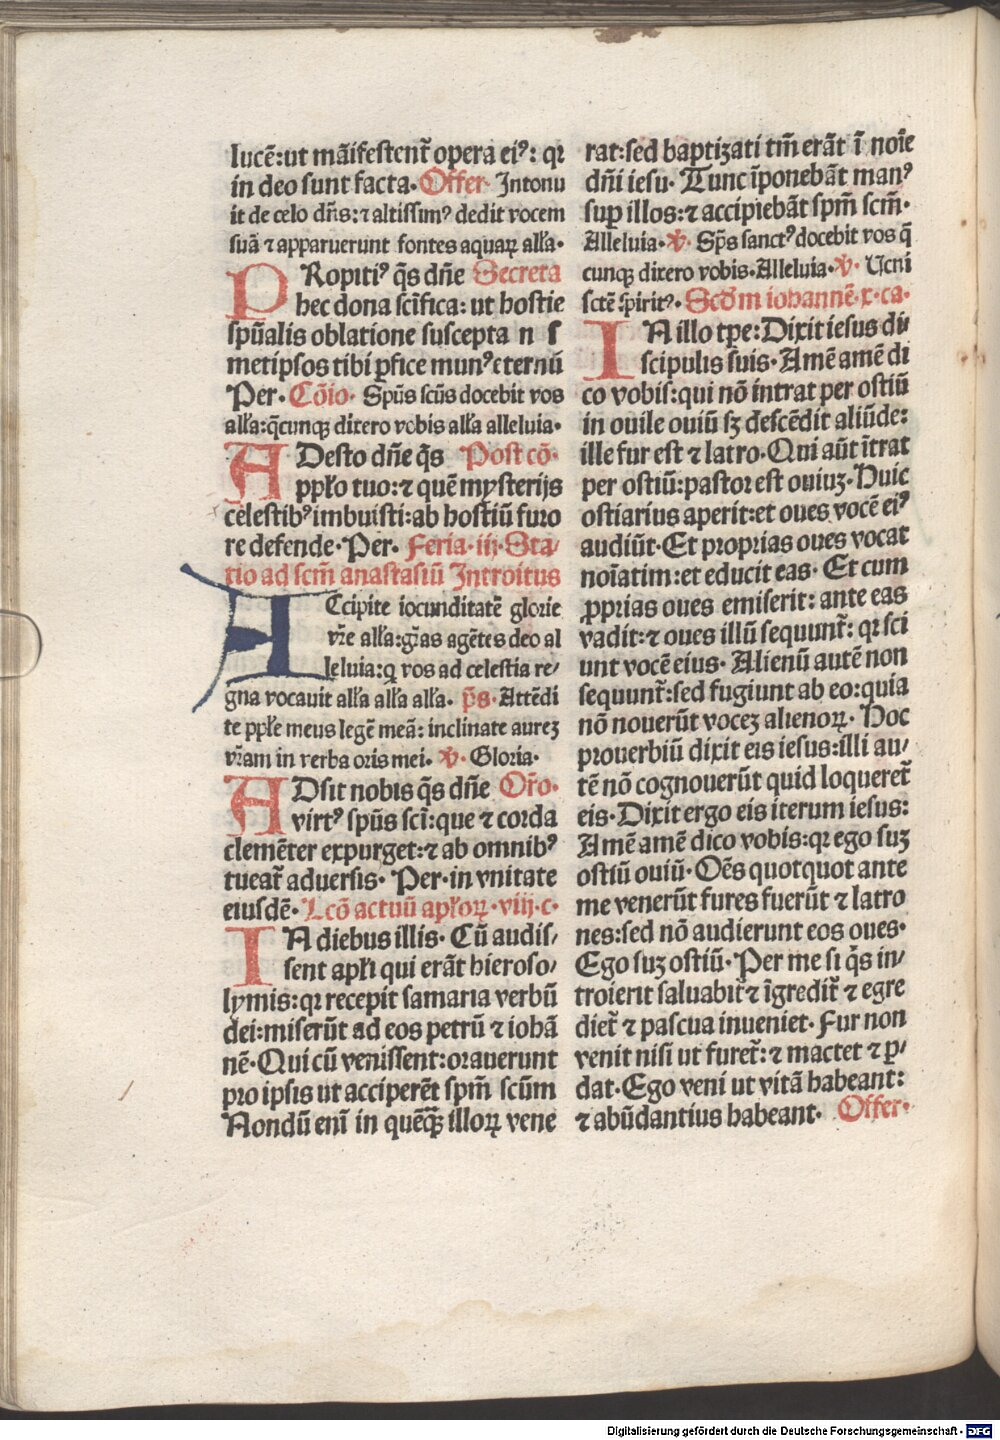 lucē: ut māifestent᷑ opera eiꝰ: qꝛ
in deo sunt facta. Offer. Intonu
it de celo dn̄s: ⁊ altissimꝰ dedit vocem
suā ⁊ apparuerunt fontes aquaꝝ all'a.
PRopitiꝰ q̄s dn̄e Secreta
hec dona sc̄ifica: ut hostie
spūalis oblatione suscepta n s
metipsos tibi ꝑfice munꝰ eternū
Per. Cōio. Spūs scūs docebit vos
all'a: q̄cunqꝫ dixero vobis all'a alleluia.
ADesto dn̄e q̄s Post cō.
pplo tuo: ⁊ quē mysterijs
celestibꝰ imbuisti: ab hostiū furo
re defende. Per. Feria. iij. Sta⸗
tio ad scm̄ anastasiū Introitus
ACcipite iocunditatē glorie
vr̄e all'a: gr̄as agētes deo al
leluia: q vos ad celestia re⸗
gna vocauit all'a all'a all'a. p̄s. Attēdi
te pple meus legē meā: inclinate aureꝫ
vr̄am in verba oris mei. ℣. Gloria.
ADsit nobis q̄s dn̄e Or̄o.
virtꝰ spūs sci: que ⁊ corda
clemēter expurget: ⁊ ab omnibꝰ
tueat᷑ aduersis. Per. in vnitate
eiusdē. Lcō actuū apl'oꝝ. viij. c.
IN diebus illis. Cū audis⸗
sent apl'i qui erāt hieroso⸗
lymis: qꝛ recepit samaria verbū
dei: miserūt ad eos petrū ⁊ iohā
nē. Qui cū venissent: orauerunt
pro ipsis ut acciperēt spm̄ scūm
Nondū eni in quēqꝫ illoꝝ vene
rat: sed baptizati tm̄ erāt ī noīe
dn̄i iesu. Tunc īponebāt manꝰ
suꝑ illos: ⁊ accipiebāt spm̄ scm̄.
Alleluia. ℣. Spūs sanctꝰ docebit vos q̄
cunqꝫ dixero vobis. Alleluia. ℣. Veni
sctē spiritꝰ. Scd'm iohannē. x. ca.
IN illo tpe: Dixit iesus di⸗
scipulis suis. Amē amē di
co vobis: qui nō intrat per ostiū
in ouile ouiū sꝫ descēdit aliūde:
ille fur est ⁊ latro. Qui aūt ītrat
per ostiū: pastor est ouiuꝫ. Huic
ostiarius aperit: et oues vocē eiꝰ
audiūt. Et proprias oues vocat
noīatim: et educit eas. Et cum
ꝓprias oues emiserit: ante eas
vadit: ⁊ oues illū sequunt᷑: qꝛ sci
unt vocē eius. Alienū autē non
sequunt᷑: sed fugiunt ab eo: quia
nō nouerūt voceꝫ alienoꝝ. Hoc
prouerbiū dixit eis iesus: illi au⸗
tē nō cognouerūt quid loqueret᷑
eis. Dixit ergo eis iterum iesus:
Amē amē dico vobis: qꝛ ego suꝫ
ostiū ouiū. Oēs quotquot ante
me venerūt fures fuerūt ⁊ latro
nes: sed nō audierunt eos oues.
Ego suꝫ ostiū. Per me si q̇s in⸗
troierit saluabit᷑ ⁊ īgredit᷑ ⁊ egre
diet᷑ ⁊ pascua inueniet. Fur non
venit nisi ut furet᷑: ⁊ mactet ⁊ ꝑ⸗
dat. Ego veni ut vitā habeant:
⁊ abūdantius habeant. Offer.
Digitalisierung gefördert durch die Deutsche Forschungsgemeinschaft - DFG